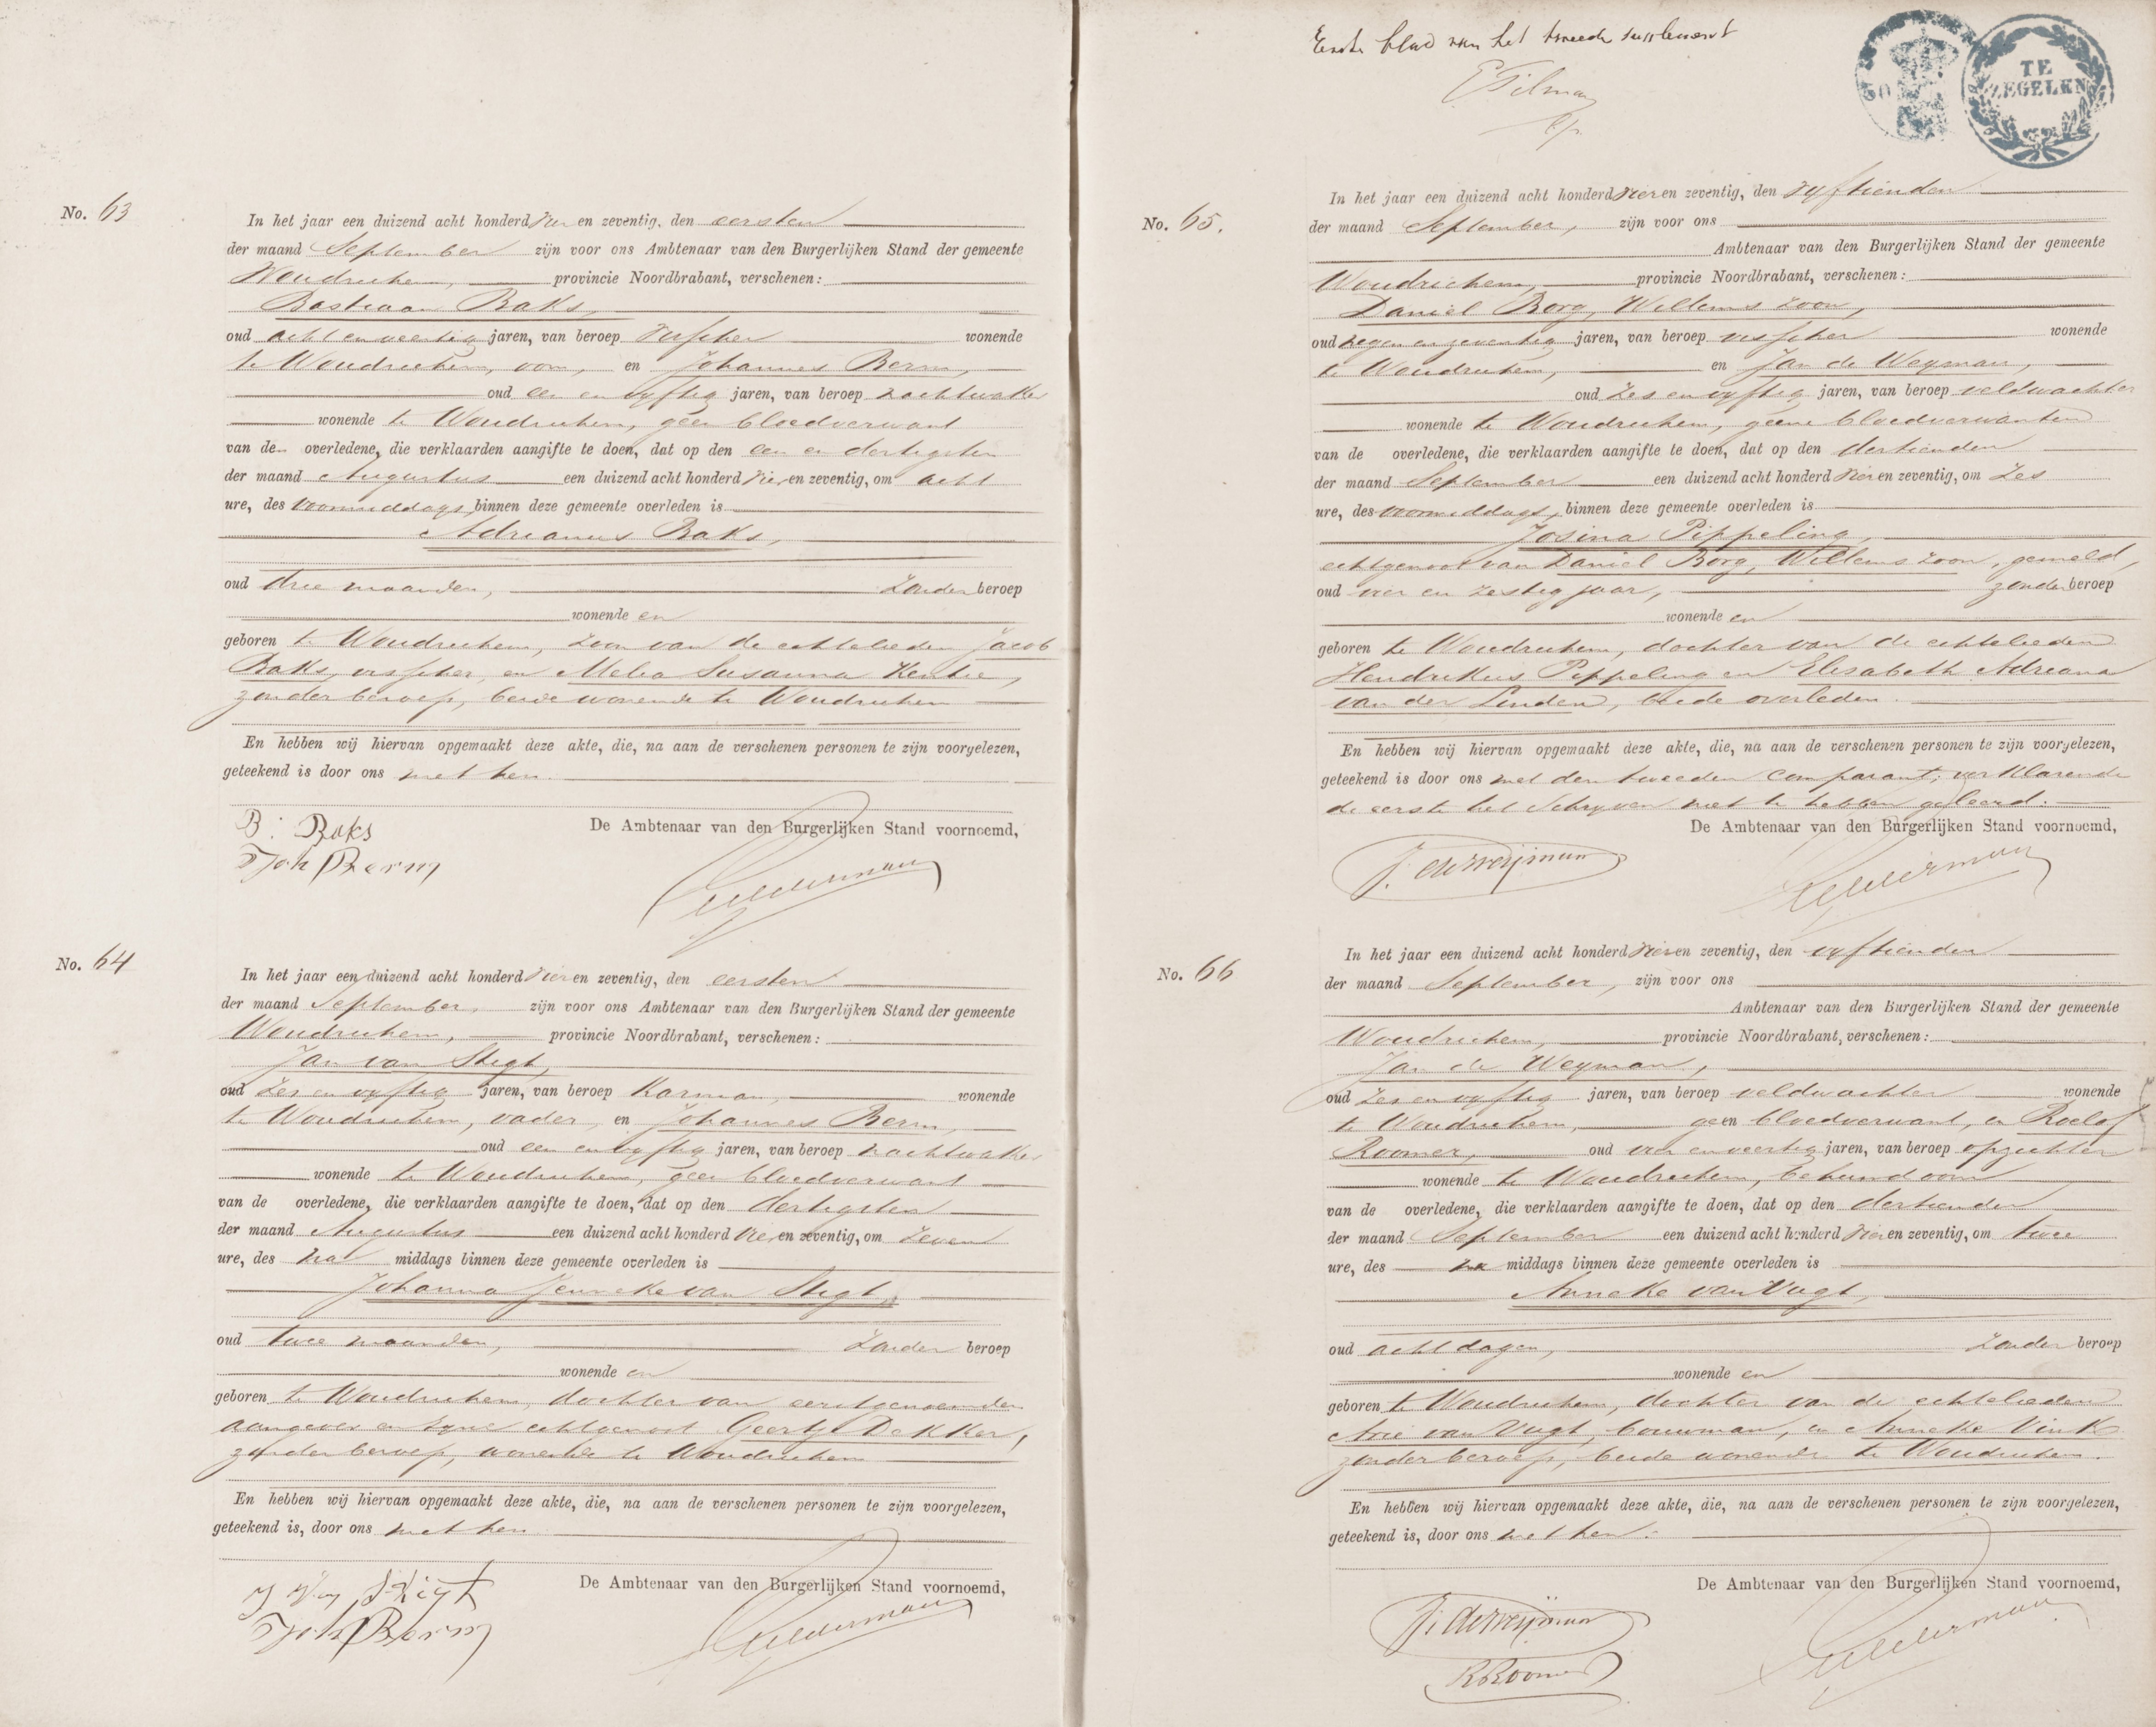 No. 63
In het jaar een duizend acht honderd vier en zeventig, den eersten
der maand September zijn voor ons Ambtenaar van den Burgerlijken Stand der gemeente
Woudrichem, provincie Noordbrabant, verschenen:
Bastiaan Baks,
oud acht en veertig jaren, van beroep visscher wonende
te Woudrichem, oom, en Johannes Berm,
oud een en vyftig jaren, van beroep nachtwaker
wonende te Woudrichem, geen bloedverwant
van de overledene, die verklaarden aangifte te doen, dat op den een en dertigsten
der maand Augustus een duizend acht honderd vier en zeventig, om acht
ure, des voormiddags, binnen deze gemeente overleden is
Adrianus Baks,
oud drie maanden, zonder beroep
wonende en
geboren te Woudrichem, zoon van de echtelieden Jacob
Baks, visscher, en Melia Susanna Kentie,
zonder beroep, beide wonende te Woudrichem
En hebben wij hiervan opgemaakt deze akte, die, na aan de verschenen personen te zijn voorgelezen,
geteekend is door ons met hen.
De Ambtenaar van den Burgerlijken Stand voornoemd,
B: Baks
Joh Berm
No. 64
In het jaar een duizend acht honderd vier en zeventig, den eersten
der maand September, zijn voor ons Ambtenaar van den Burgerlijken Stand der gemeente
Woudrichem, provincie Noordbrabant, verschenen:
Jan van Stigt,
oud zes en vyftig jaren, van beroep Karman, wonende
te Woudrichem, vader, en Johannes Berm,
oud een en vyftig jaren, van beroep nachtwaker
wonende te Woudrichem, geen bloedverwant
van de overledene, die verklaarden aangifte te doen, dat op den dertigsten
der maand Augustus een duizend acht honderd vier en zeventig, om zeven
ure, des na middags binnen deze gemeente overleden is
Johanna Jenneke van Stigt,
oud twee maanden, zonder beroep
wonende en
geboren te Woudrichem, dochter van eerstgenoemden
aangever en zyne echtgenoot Geertje Dekker,
zonder beroep, wonende te Woudrichem
En hebben wij hiervan opgemaakt deze akte, die, na aan de verschenen personen te zijn voorgelezen,
geteekend is, door ons met hen.
De Ambtenaar van den Burgerlijken Stand voornoemd,
J Van Stigt
Joh Berm
Eerste blad van het tweede supplement
TE
ZEGELEN
50
No. 65.
In het jaar een duizend acht honderd vier en zeventig, den vyftienden
der maand September, zijn voor ons
Ambtenaar van den Burgerlijken Stand der gemeente
Woudrichem, provincie Noordbrabant, verschenen:
Daniel Borg, Willems zoon,
oud negen en zeventig jaren, van beroep visscher wonende
te Woudrichem, en Jan de Weyman,
oud zes en vyftig jaren, van beroep veldwachter
wonende te Woudrichem, geene bloedverwanten
van de overledene, die verklaarden aangifte te doen, dat op den dertienden
der maand September een duizend acht honderd vier en zeventig, om zes
ure, des voormiddags, binnen deze gemeente overleden is
Josina Pippeling,
echtgenoot van Daniel Borg, Willems zoon, gemeld,
oud vier en zestig jaar, zonder beroep
wonende en
geboren te Woudrichem, dochter van de echtelieden
Hendrikus Pippeling en Elisabeth Adriana
van der Linden, beide overleden.
En hebben wij hiervan opgemaakt deze akte, die, na aan de verschenen personen te zijn voorgelezen,
geteekend is door ons met den tweeden comparant; verklarende
de eerste het schryven niet te hebben geleerd.
De Ambtenaar van den Burgerlijken Stand voornoemd,
J. de Weijman
No. 66
In het jaar een duizend acht honderd vier en zeventig, den vyftienden
der maand September, zijn voor ons
Ambtenaar van den Burgerlijken Stand der gemeente
Woudrichem, provincie Noordbrabant, verschenen:
Jan de Weyman,
oud zes en vyftig jaren, van beroep veldwachter wonende
te Woudrichem, geen bloedverwant, en Roelof
Roomer, oud vier en veertig jaren, van beroep opzichter
wonende te Woudrichem, behuwd oom
van de overledene, die verklaarden aangifte te doen, dat op den dertienden
der maand September een duizend acht honderd vier en zeventig, om twee
ure, des na middags binnen deze gemeente overleden is
Anneke van Vugt,
oud acht dagen, zonder beroep
wonende en
geboren te Woudrichem, dochter van de echtelieden
Arie van Vugt, bouwman, en Anneke Vink
zonder beroep, beide wonende te Woudrichem.
En hebben wij hiervan opgemaakt deze akte, die, na aan de verschenen personen te zijn voorgelezen,
geteekend is, door ons met hen.
De Ambtenaar van den Burgerlijken Stand voornoemd,
J. de Weijman
R Roomer